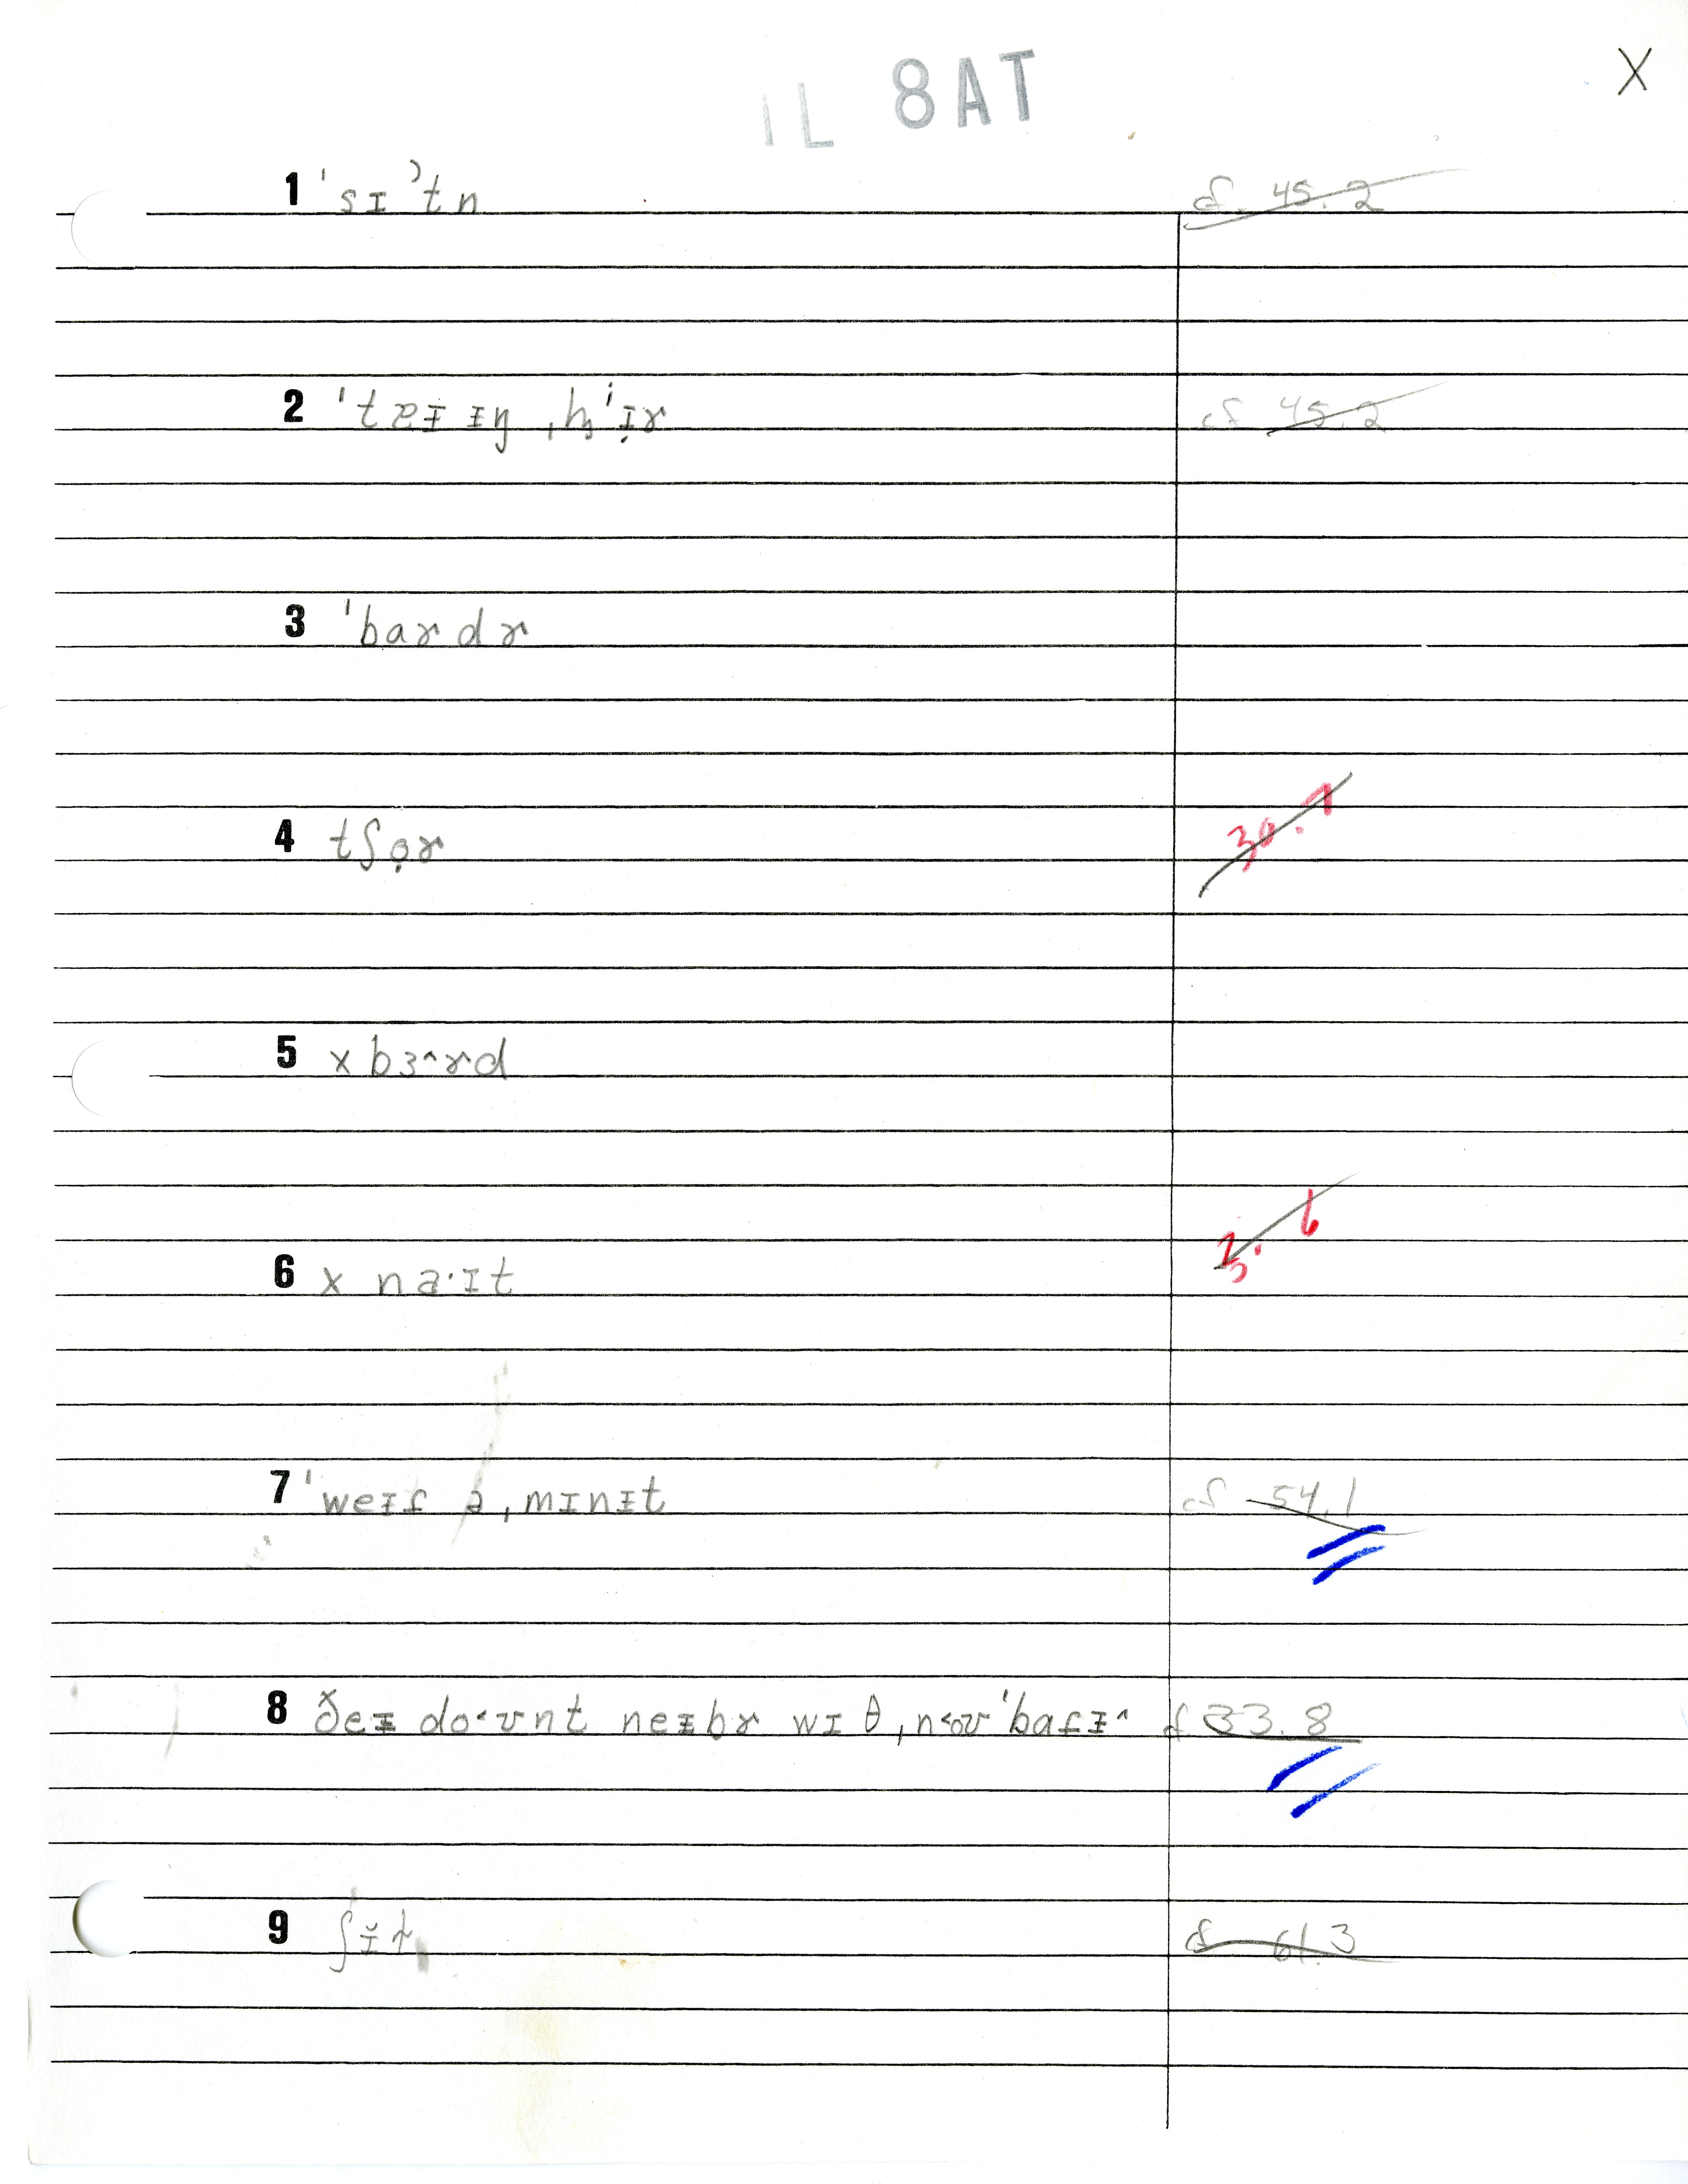 IL 8AT X
1 ˈsɪʾtn cf. 45.2
2 cf 45.2
3 ˈbardr
4 tʃọr 30.7
5 x bɜ^rd
6 x na·ɪt 3.6
7 ˈweɪɾ ə ˌmɪnɪt cf 54.1
8 ðeɪ do˂ʊnt neɪbr wɪθ ˌn˂oʊˈbaɾɪ^ cf. 33.8
9 cf 61.3